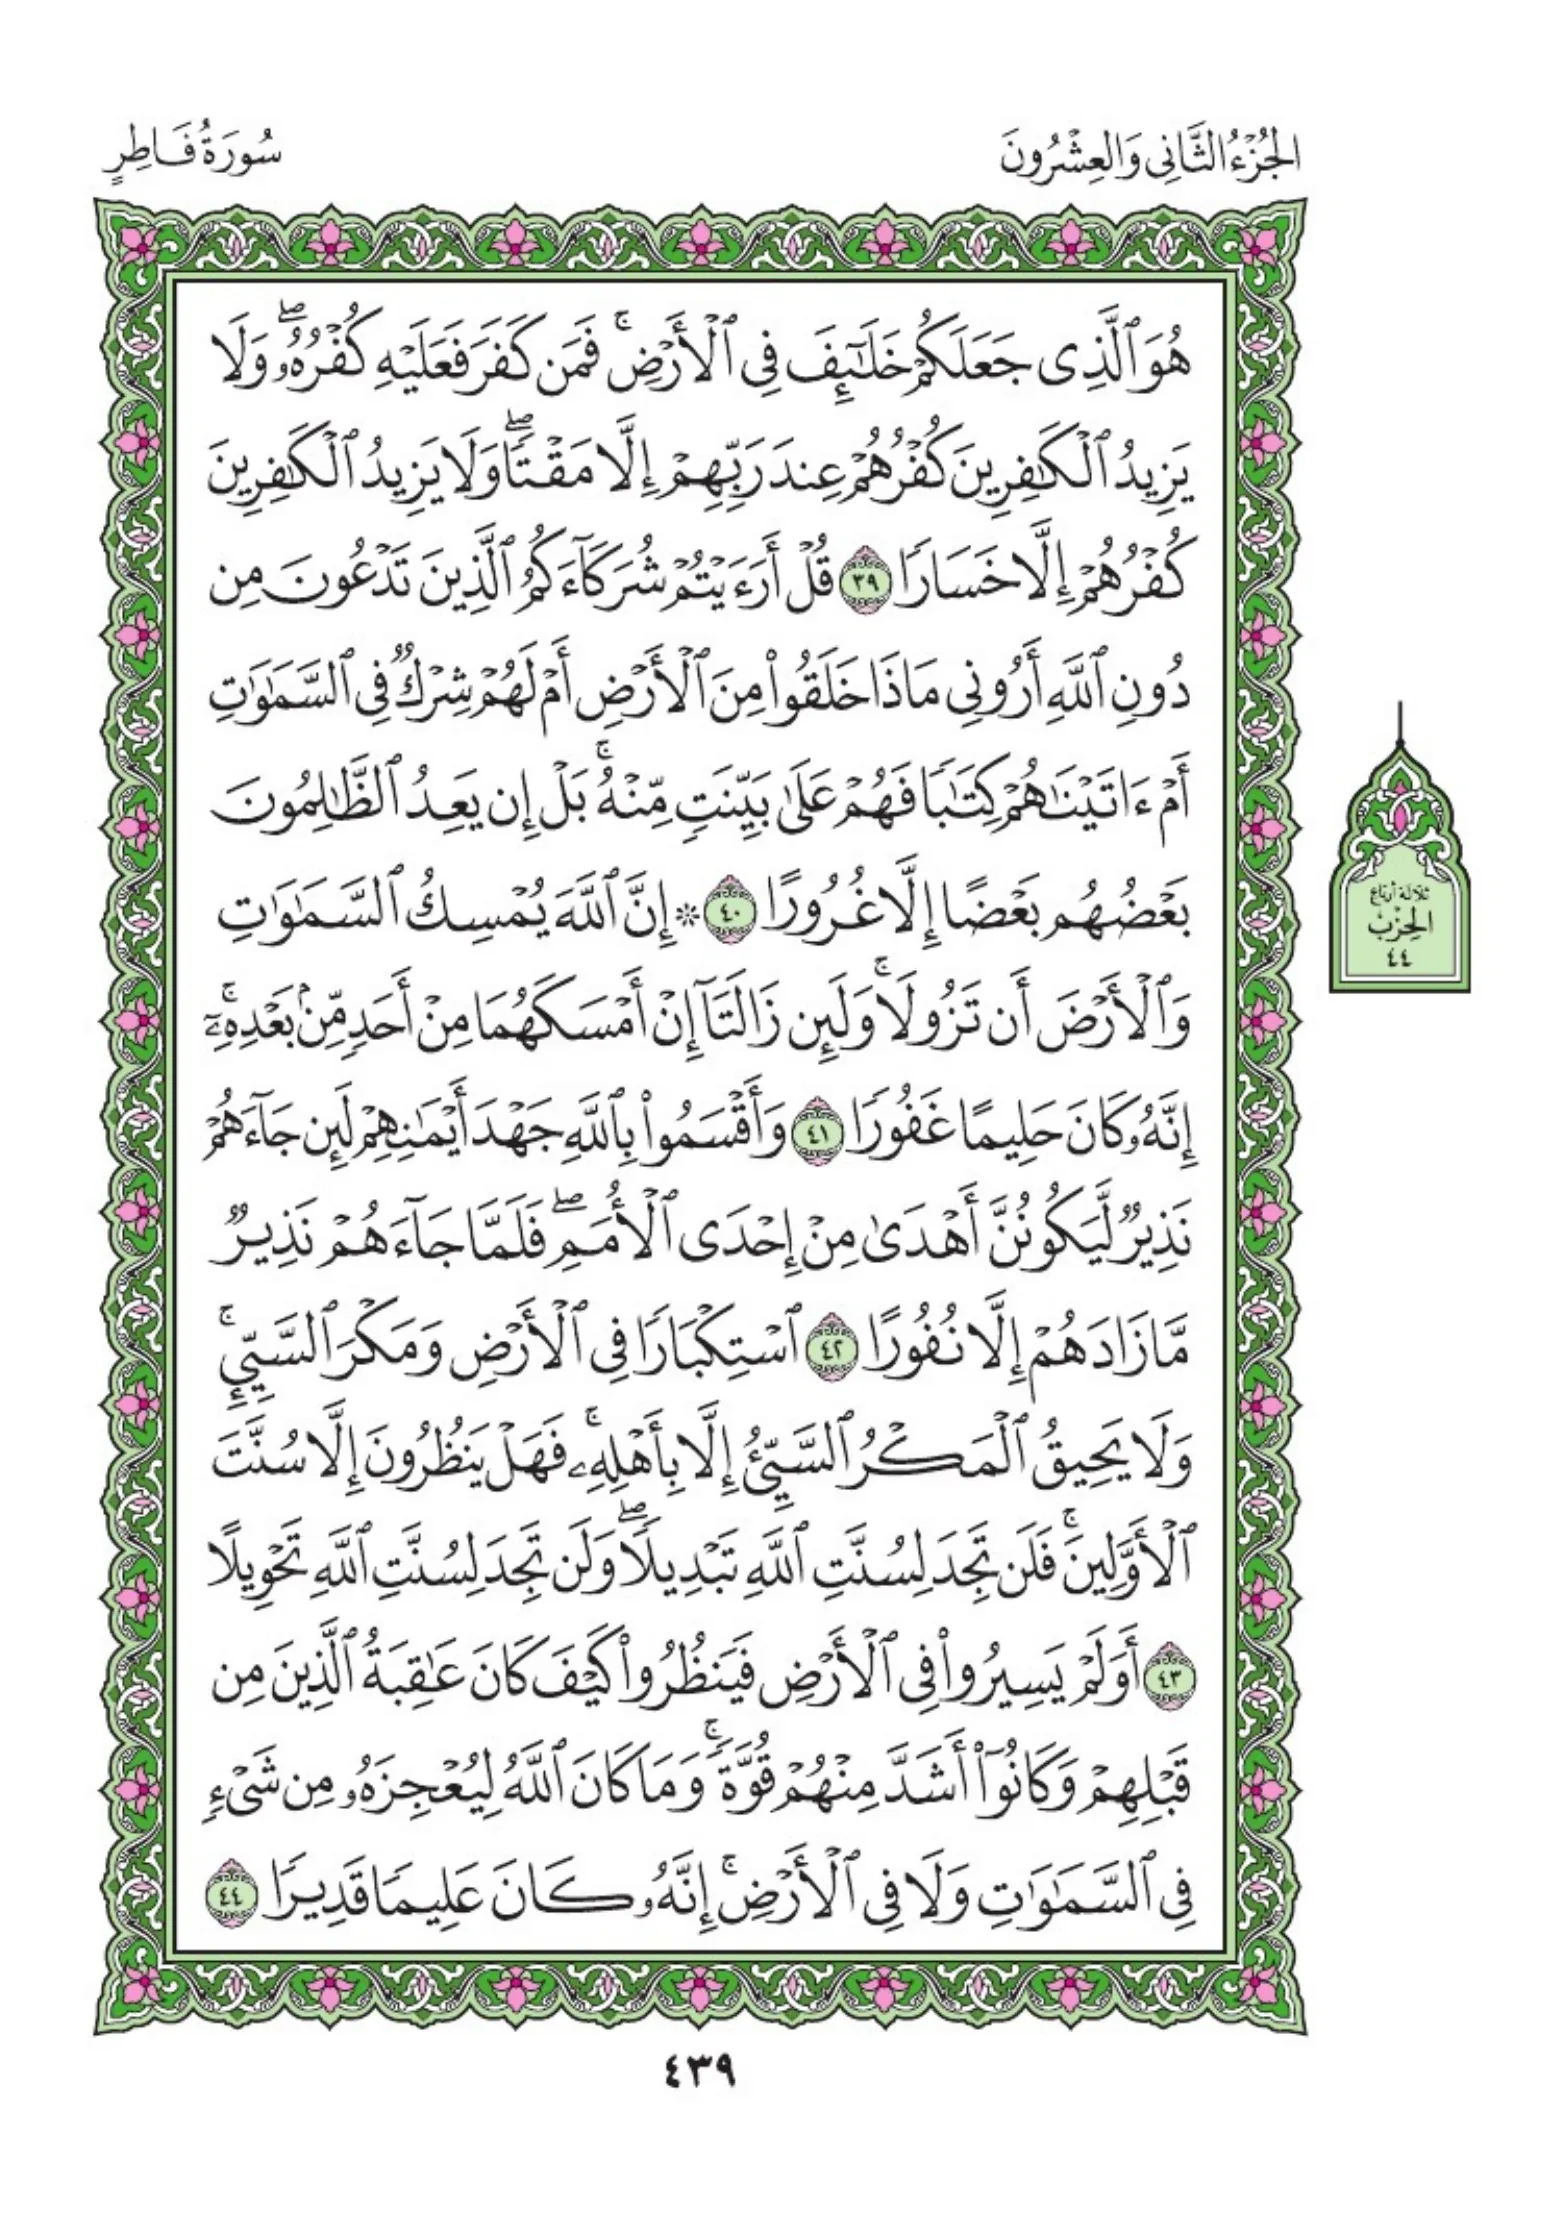 الجُزْءُ الثَّانِي وَالعِشْرُونَ
سُورَةُ فَاطِرٍ
هُوَ ٱلَّذِى جَعَلَكُمْ خَلَـٰٓئِفَ فِى ٱلْأَرْضِ ۚ فَمَن كَفَرَ فَعَلَيْهِ كُفْرُهُۥ ۖ وَلَا
يَزِيدُ ٱلْكَـٰفِرِينَ كُفْرُهُمْ عِندَ رَبِّهِمْ إِلَّا مَقْتًا ۖ وَلَا يَزِيدُ ٱلْكَـٰفِرِينَ
كُفْرُهُمْ إِلَّا خَسَارًا ٣٩ قُلْ أَرَءَيْتُمْ شُرَكَآءَكُمُ ٱلَّذِينَ تَدْعُونَ مِن
دُونِ ٱللَّهِ أَرُونِى مَاذَا خَلَقُوا۟ مِنَ ٱلْأَرْضِ أَمْ لَهُمْ شِرْكٌ فِى ٱلسَّمَـٰوَٰتِ
أَمْ ءَاتَيْنَـٰهُمْ كِتَـٰبًا فَهُمْ عَلَىٰ بَيِّنَتٍ مِّنْهُ ۚ بَلْ إِن يَعِدُ ٱلظَّـٰلِمُونَ
بَعْضُهُم بَعْضًا إِلَّا غُرُورًا ٤٠ ۞ إِنَّ ٱللَّهَ يُمْسِكُ ٱلسَّمَـٰوَٰتِ
وَٱلْأَرْضَ أَن تَزُولَا ۚ وَلَئِن زَالَتَآ إِنْ أَمْسَكَهُمَا مِنْ أَحَدٍ مِّنۢ بَعْدِهِۦٓ ۚ
إِنَّهُۥ كَانَ حَلِيمًا غَفُورًا ٤١ وَأَقْسَمُوا۟ بِٱللَّهِ جَهْدَ أَيْمَـٰنِهِمْ لَئِن جَآءَهُمْ
نَذِيرٌ لَّيَكُونُنَّ أَهْدَىٰ مِنْ إِحْدَى ٱلْأُمَمِ ۖ فَلَمَّا جَآءَهُمْ نَذِيرٌ
مَّا زَادَهُمْ إِلَّا نُفُورًا ٤٢ ٱسْتِكْبَارًا فِى ٱلْأَرْضِ وَمَكْرَ ٱلسَّيِّئِ ۚ
وَلَا يَحِيقُ ٱلْمَكْرُ ٱلسَّيِّئُ إِلَّا بِأَهْلِهِۦ ۚ فَهَلْ يَنظُرُونَ إِلَّا سُنَّتَ
ٱلْأَوَّلِينَ ۚ فَلَن تَجِدَ لِسُنَّتِ ٱللَّهِ تَبْدِيلًا ۖ وَلَن تَجِدَ لِسُنَّتِ ٱللَّهِ تَحْوِيلًا
٤٣ أَوَلَمْ يَسِيرُوا۟ فِى ٱلْأَرْضِ فَيَنظُرُوا۟ كَيْفَ كَانَ عَـٰقِبَةُ ٱلَّذِينَ مِن
قَبْلِهِمْ وَكَانُوٓا۟ أَشَدَّ مِنْهُمْ قُوَّةً ۚ وَمَا كَانَ ٱللَّهُ لِيُعْجِزَهُۥ مِن شَىْءٍ
فِى ٱلسَّمَـٰوَٰتِ وَلَا فِى ٱلْأَرْضِ ۚ إِنَّهُۥ كَانَ عَلِيمًا قَدِيرًا ٤٤
ثلاثة أرباع
الحِزْبْ
٤٤
٤٣٩